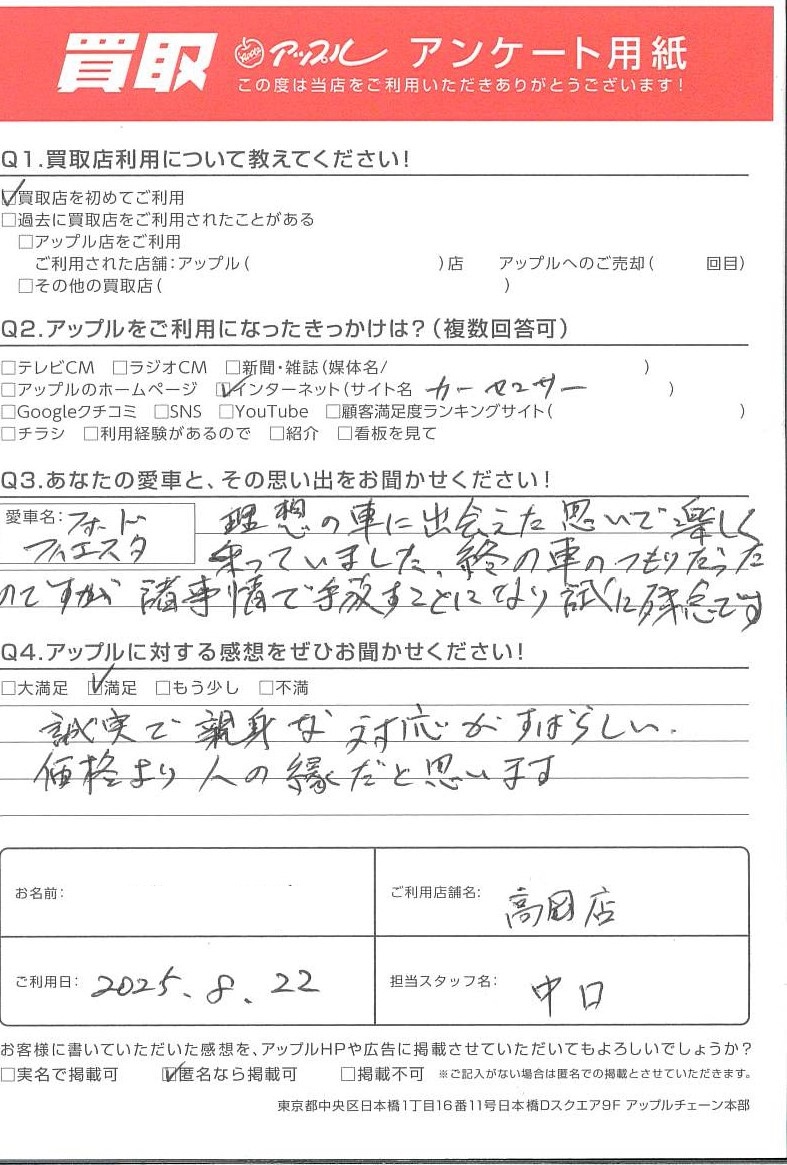 買取 アップル アンケート用紙
この度は当店をご利用いただきありがとうございます!
Q1.買取店利用について教えてください!
☑買取店を初めてご利用
□過去に買取店をご利用されたことがある
□アップル店をご利用
ご利用された店舗:アップル( )店 アップルへのご売却( 回目)
□その他の買取店( )
Q2.アップルをご利用になったきっかけは?(複数回答可)
□テレビCM □ラジオCM □新聞・雑誌(媒体名/ )
□アップルのホームページ ☑インターネット(サイト名 カーセンサー )
□Googleクチコミ □SNS □YouTube □顧客満足度ランキングサイト( )
□チラシ □利用経験があるので □紹介 □看板を見て
Q3.あなたの愛車と、その思い出をお聞かせください!
愛車名:フォード
フィエスタ
理想の車に出会えた思いで楽しく
乗っていました、終の車のつもりだった
のですが 諸事情で手放すことになり 誠に残念です
Q4.アップルに対する感想をぜひお聞かせください!
□大満足 ☑満足 □もう少し □不満
誠実で親身な対応がすばらしい.
価格より人の縁だと思います
お名前:
ご利用店舗名: 高岡店
ご利用日: 2025.8.22
担当スタッフ名: 中口
お客様に書いていただいた感想を、アップルHPや広告に掲載させていただいてもよろしいでしょうか?
□実名で掲載可 ☑匿名なら掲載可 □掲載不可 ※ご記入がない場合は匿名での掲載とさせていただきます。
東京都中央区日本橋1丁目16番11号日本橋Dスクエア9F アップルチェーン本部